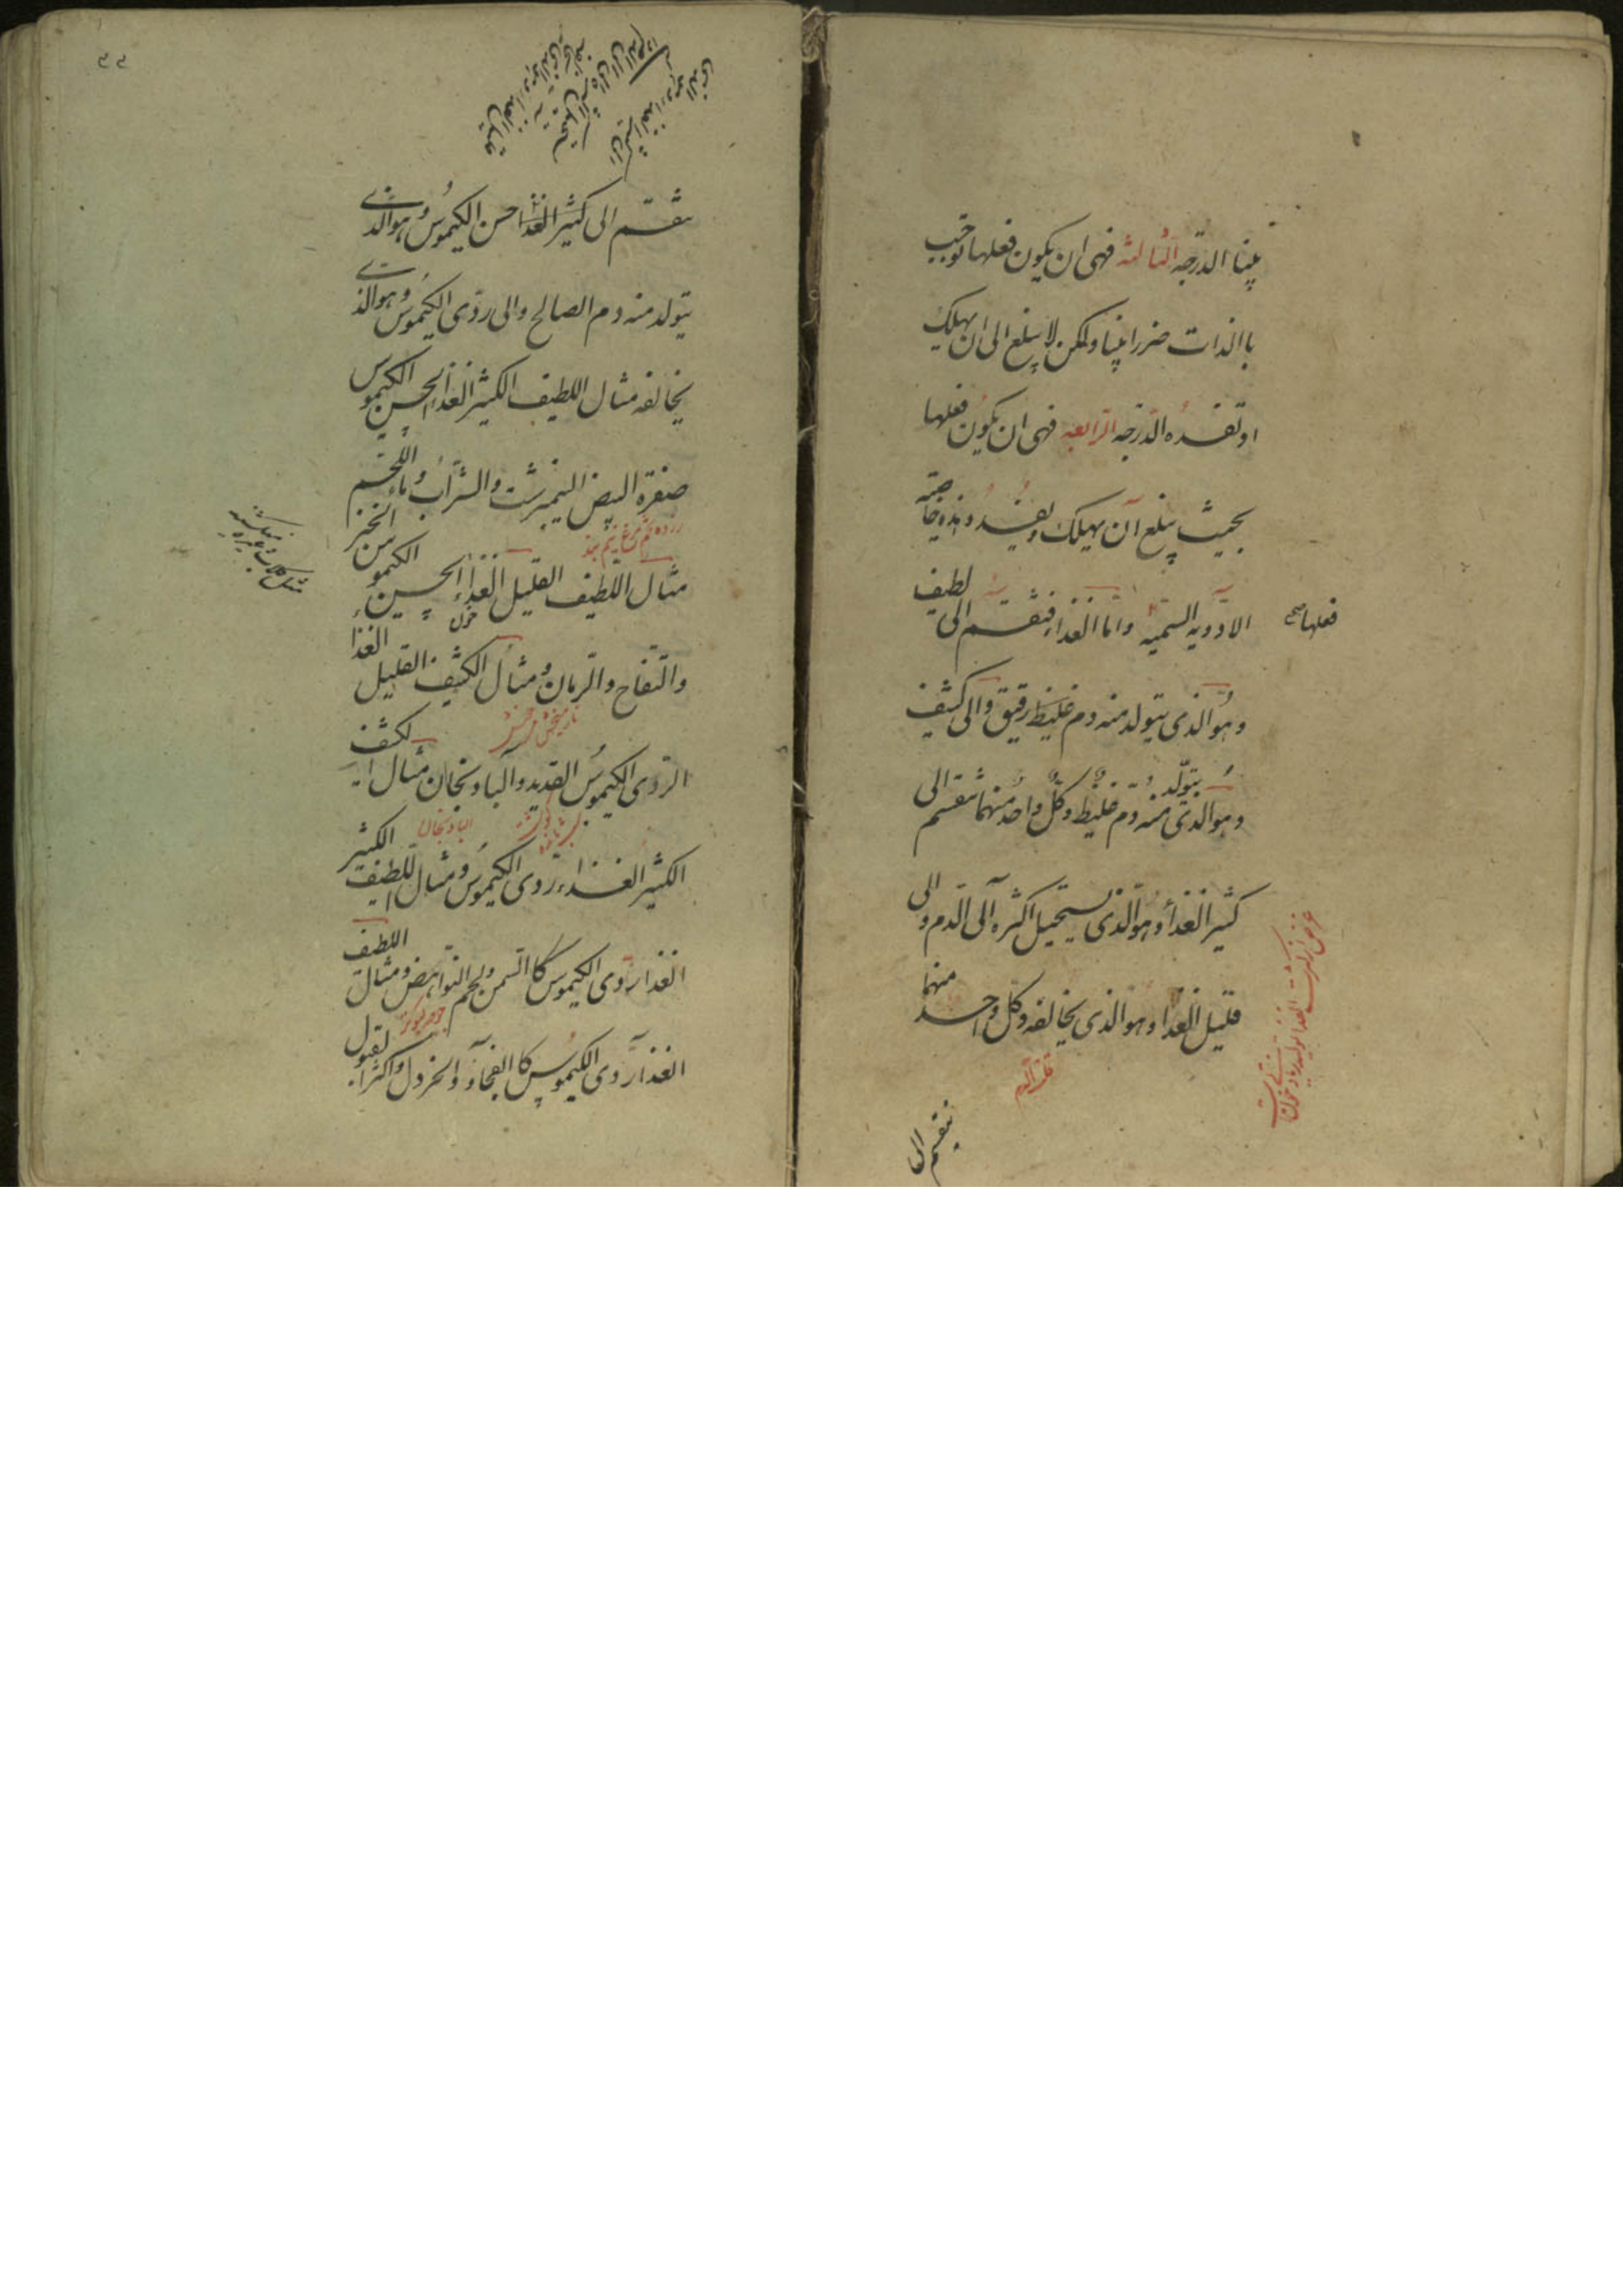 بينا الدرجه الثالثه فهى ان يكون فعلها توجب
باالذات ضررا بينا ولكن لا يبلغ الى ان يهلك
او تفسده الدرجه الرابعه فهى ان يكون فعلها
بحيث يبلغ ان يهلك و يفسد و هذه خاصته
الادويه السميه واما الغذا فينقسم الى لطيف
فعلها صح
وهو الذى يتولد منه دم غليظ رقيق والى كثيف
وهو الذى يتولد منه دم غليظ وكل واحد منهما ينقسم الى
كثير الغذا وهو الذى يستحيل اكثره الى الدم و الى
قليل الغذا وهو الذى يخالفه وكل واحد منهما
ينقسم الى
٩٩
ينقسم الى كثير الغذا حسن الكيموس وهو الذى
يتولد منه دم الصالح والى ردى الكيموس وهو الذى
يخالفه مثال اللطيف الكثير الغذا الحسن الكيموس
صفرة البيض النيمبرشت والشراب وماء اللحم
زرده تخم مرغ نيم پز
مثال اللطيف القليل الغذاء الحسن الكيموس الخبز
والتفاح والرمان ومثال الكثيف القليل الغذا
الردى الكيموس القديد والبادنجان مثال الكثيف
البادنجان
الكثير الغذاء ردى الكيموس ومثال اللطيف الكثير
الغذا ردى الكيموس كاالسمن ولحم النواهض ومثال اللطيف
الغذا ردى الكيموس كاالفجل والخردل واكثر البقول